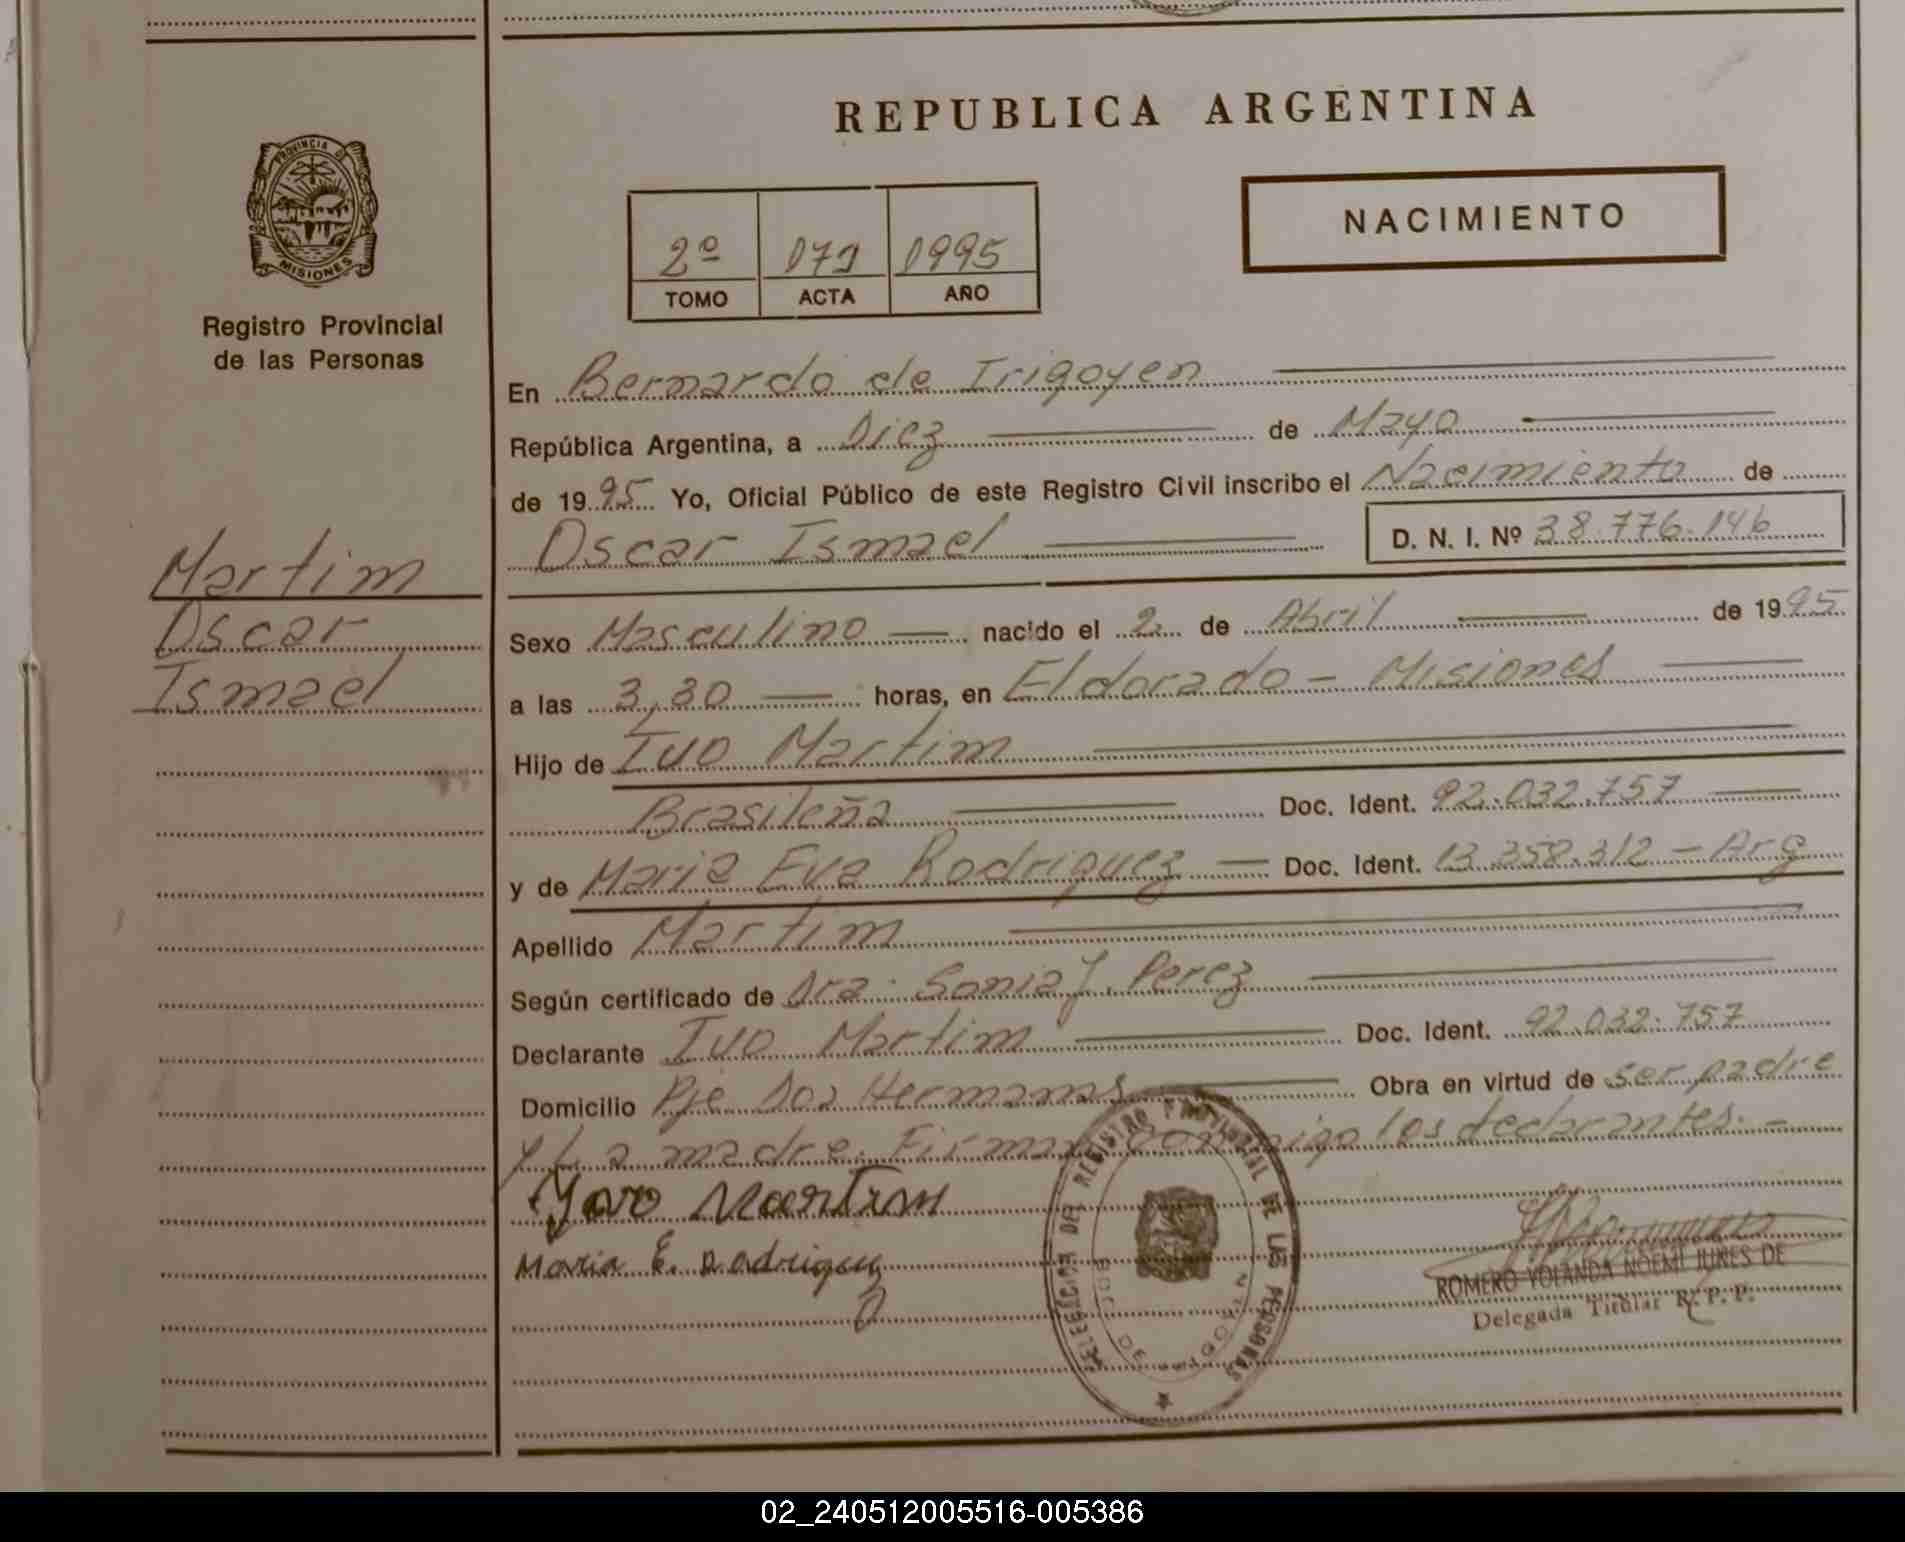 REPUBLICA ARGENTINA
PROVINCIA DE
MISIONES
Registro Provincial
de las Personas
NACIMIENTO
2º 171 1995
TOMO ACTA AÑO
En Bernardo de Irigoyen
República Argentina, a Diez de Mayo
de 1995 Yo, Oficial Público de este Registro Civil inscribo el Nacimiento de
Oscar Ismael D. N. I. Nº 38.776.146
Martim
Oscar
Ismael
Sexo Masculino nacido el 2 de Abril de 1995
a las 3,30 horas, en Eldorado - Misiones
Hijo de Ivo Martim
Brasileña Doc. Ident. 92.032.757
y de Maria Eva Rodriguez Doc. Ident. 13.358.312 - Arg
Apellido Martim
Según certificado de Dra. Sonia J. Perez
Declarante Ivo Martim Doc. Ident. 92.032.757
Domicilio Pje Dos Hermanas Obra en virtud de ser padre
y La madre. Firman conmigo los declarantes. -
Martim
Maria E. Rodriguez
DELEGACION DEL REGISTRO PROVINCIAL DE LAS PERSONAS
BDO. DE IRIGOYEN
ROMERO YOLANDA NOEMI JUNES DE
Delegada Titular R. P. P.
02_240512005516-005386